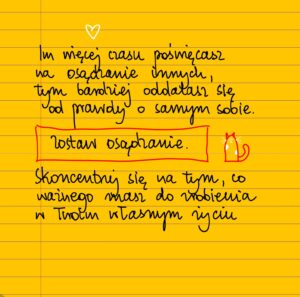 Im więcej czasu poświęcasz
na osądzanie innych,
tym bardziej oddalasz się
od prawdy o samym sobie.
Zostaw osądzanie.
Skoncentruj się na tym, co
ważnego masz do zrobienia
w Twoim własnym życiu